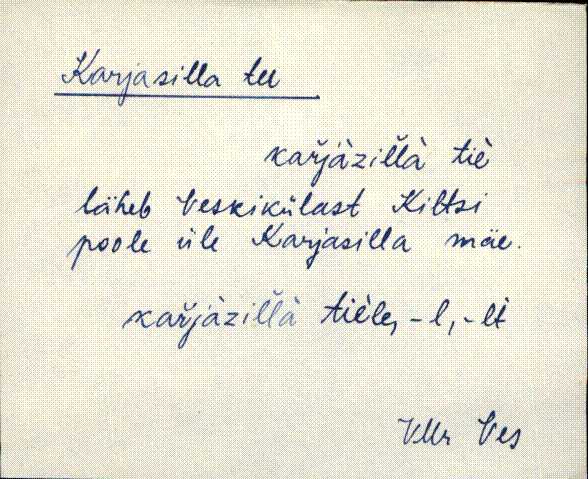 Karjasilla tee
kařjàzil̆l̆à tiè
läheb Veskikülast Kiltsi
poole üle Karjasilla mäe.
kařjàzil̆l̆à tièle, -l, -lt
VMr Ves